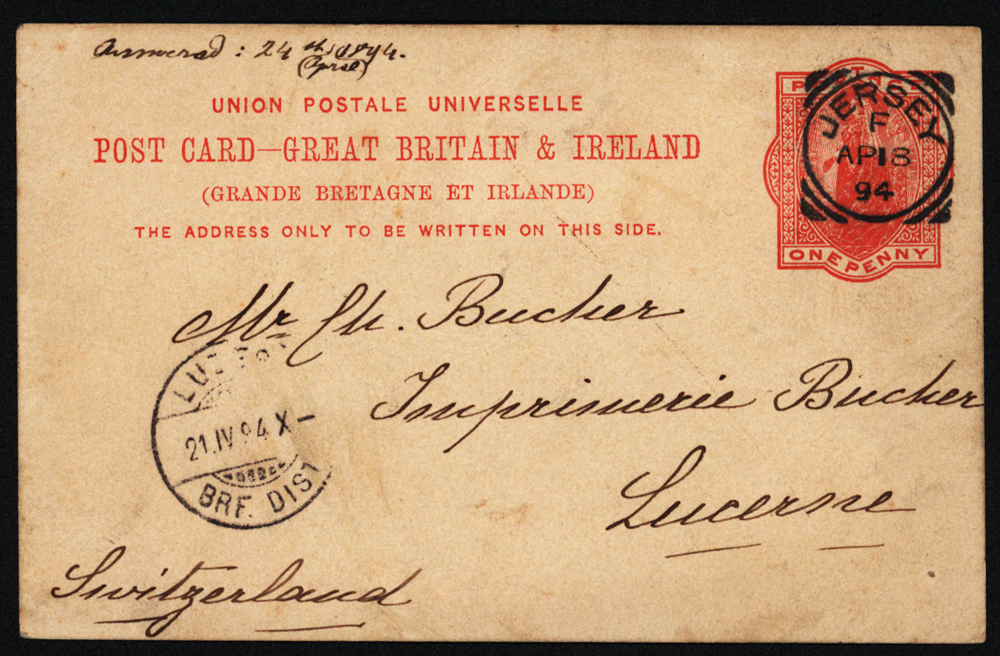 Answered : 24th 1894.
(April)
UNION POSTALE UNIVERSELLE
POST CARD—GREAT BRITAIN & IRELAND
(GRANDE BRETAGNE ET IRLANDE)
THE ADDRESS ONLY TO BE WRITTEN ON THIS SIDE.
JERSEY
F
AP18
94
ONE PENNY
Mr Ch. Bucher
Imprimerie Bucher
Lucerne
Switzerland
21.IV.94 X–
BRF. DIST